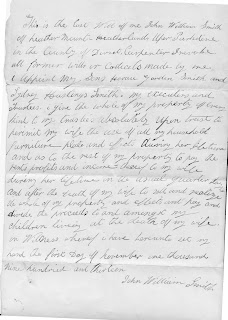 This is the last Will of me John William Smith
of Heather Mount Heatherlands Upper Parkstone
in the County of Dorset Carpenter I revoke
all former wills or Codicils made by me
I appoint my Sons George Gordon Smith and
Sydney Hastings Smith my executors and
Trustees. I give the whole of my property of every
kind to my Trustees absolutely upon trust to
permit my wife the use of all my household
furniture plate and effects during her lifetime
and as to the rest of my property to pay the
rents profits and income thereof to my wife
during her lifetime in the usual quarters
and after the death of my wife to sell and realize
the whole of my property and effects and pay and
divide the proceeds to and amongst my
children living at the death of my wife
in Witness whereof I have hereunto set my
hand the first Day of November one thousand
nine hundred and thirteen
John William Smith